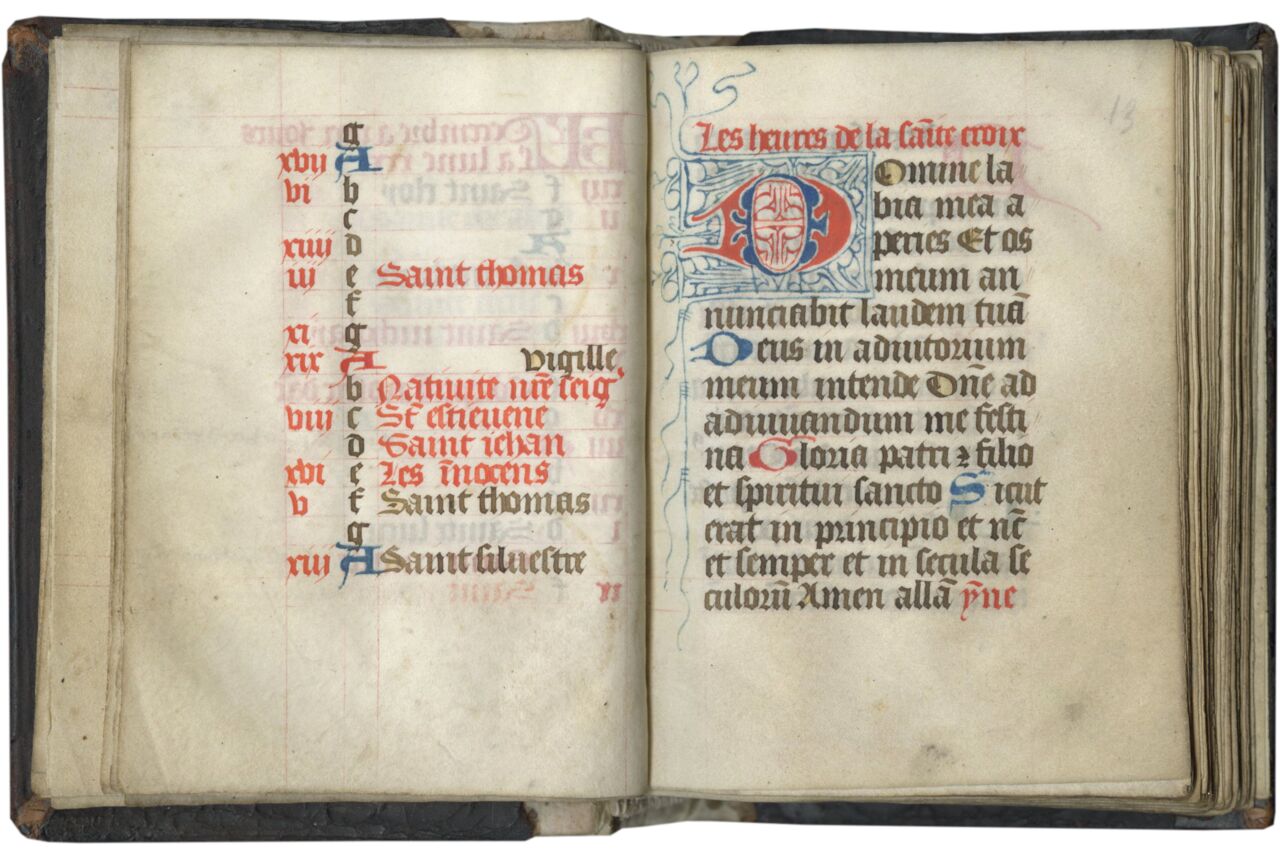 g
xvij A
vi b
c
xiiij d
iij e Saint thomas
f
xi g
xix A vigille
b Natiuite nr̄e seigʼ
viij c St̄ estieuene
d Saint iehan
xvi e Les īnocens
v f Saint thomas
g
xiij A Saint siluestre
13
Les heures de la saīte croix
Domine la
bia mea a
peries Et os
meum an
nunciabit laudem tuā
Deus in adiutorium
meum intende Dn̄e ad
adiuuandum me festi
na Gloria patri ⁊ filio
et spiritui sancto Sicut
erat in principio et nc̄
et semper et in secula se
culorū Amen allā ẏne